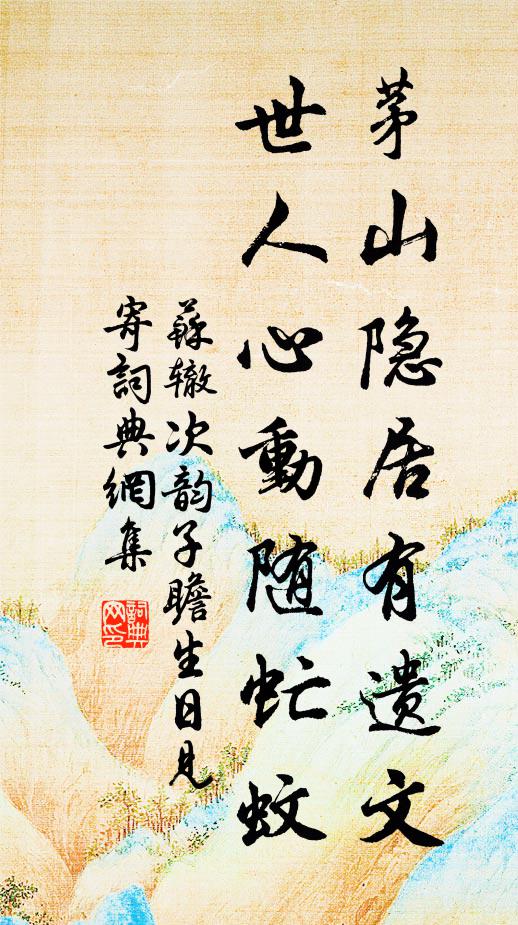 茅山隐居有遗文
世人心動随虻蚊
蘇辙次韵子瞻生日見
寄詞典網集
詞典
网印